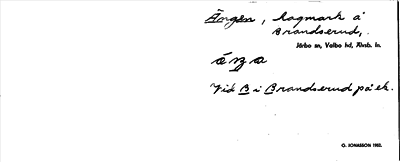 Ängen, hagmark å
Brandserud,.
Järbo sn, Valbo hd, Älvsb. ln.
Vid B i Brandserud på ek.
G. JONASSON 1962.